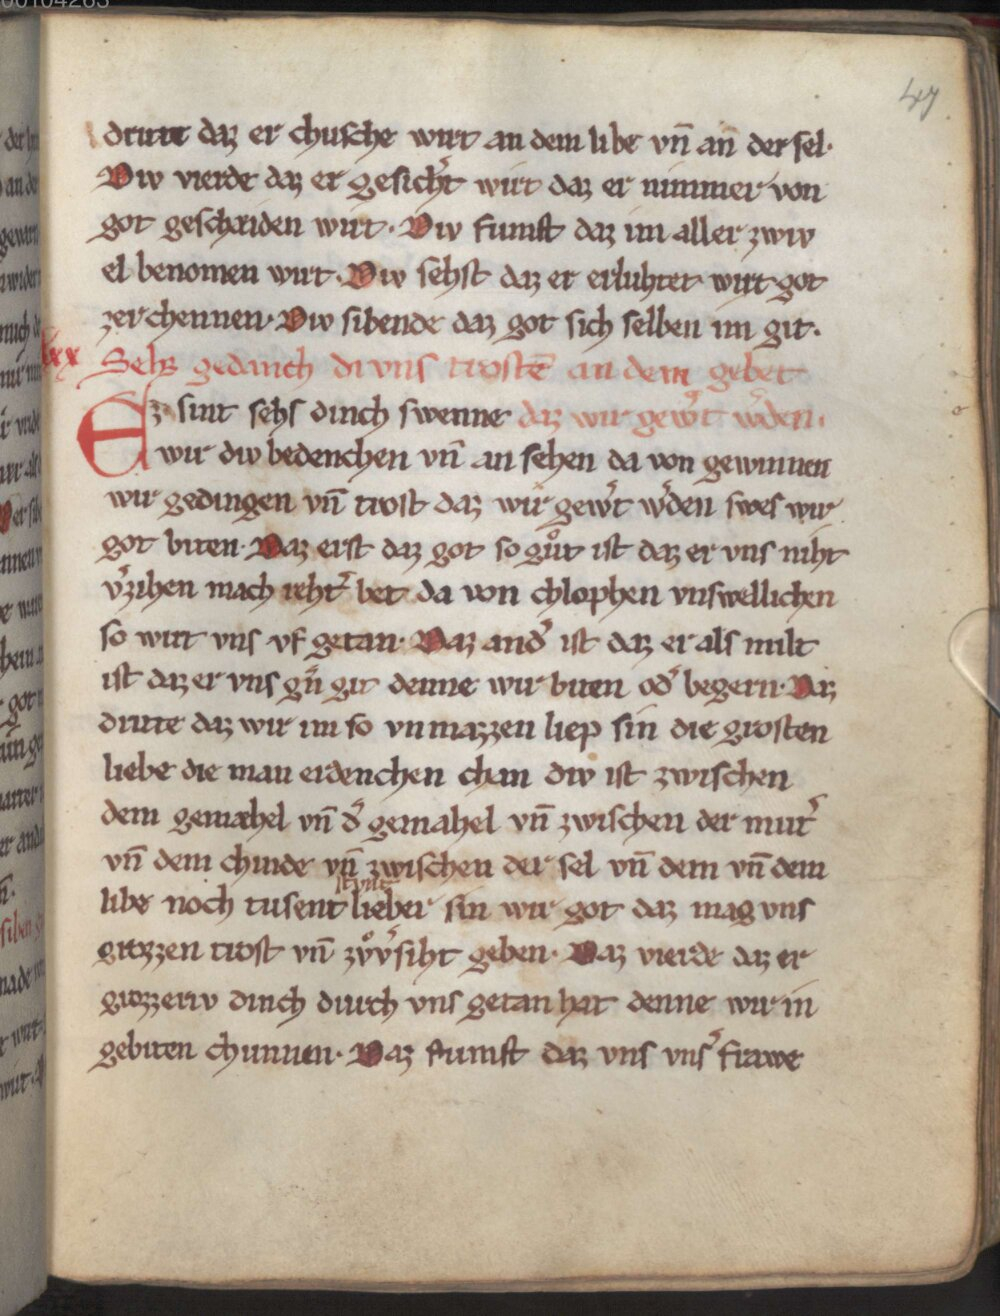 47
dritte daz er chusche wirt an dem libe vn̄ an der sel·
Div vierde daz er gesichert wirt daz er nimmer von
got geschæiden wirt· Div fumft daz im aller zwiv
el benomen wirt· Div sehst daz er erluhtet wirt got
zerchennen· Div sibende daz got sich selben im git·
lxx Sehs gedanch di vns trostē an dem gebet
Ez sint sehs dinch swenne daz wir gew̓t w̓den·
wir div bedenchen vn̄ an sehen da von gewinnen
wir gedingen vn̄ trost daz wir gew̓t w̓den swes wir
got biten· Daz erst daz got so guͦt ist daz er vns niht
v̓zihen mach reht̓ bet da von chlophen vnswellichen
so wirt vns vf getan· Daz and̓ ist daz er als milt
ist daz er vns g̓n git denne wir biten od̓ begern· Daz
dritte daz wir im so vnmazzen liep sin die grosten
liebe die man erdenchen chan div ist zwischen
dem gemæhel vn̄ d̓ gemahel vn̄ zwischen der mut̓
vn̄ dem chinde vn̄ zwischen der sel vn̄ dem vn̄ dem
stvnt
libe noch tusent lieber sin wir got daz mag vns
grozzen trost vn̄ zvͦv̓siht geben· Daz vierde daz er
grozzeriv dinch durch vns getan hat denne wir in
gebiten chunnen· Daz fumft daz vns vns̓ frawe